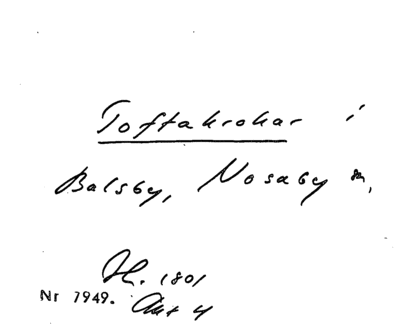 Toftakrokar i
Balsby, Nosaby sn,
Sk. 1801
Nr 7949. Akt 4